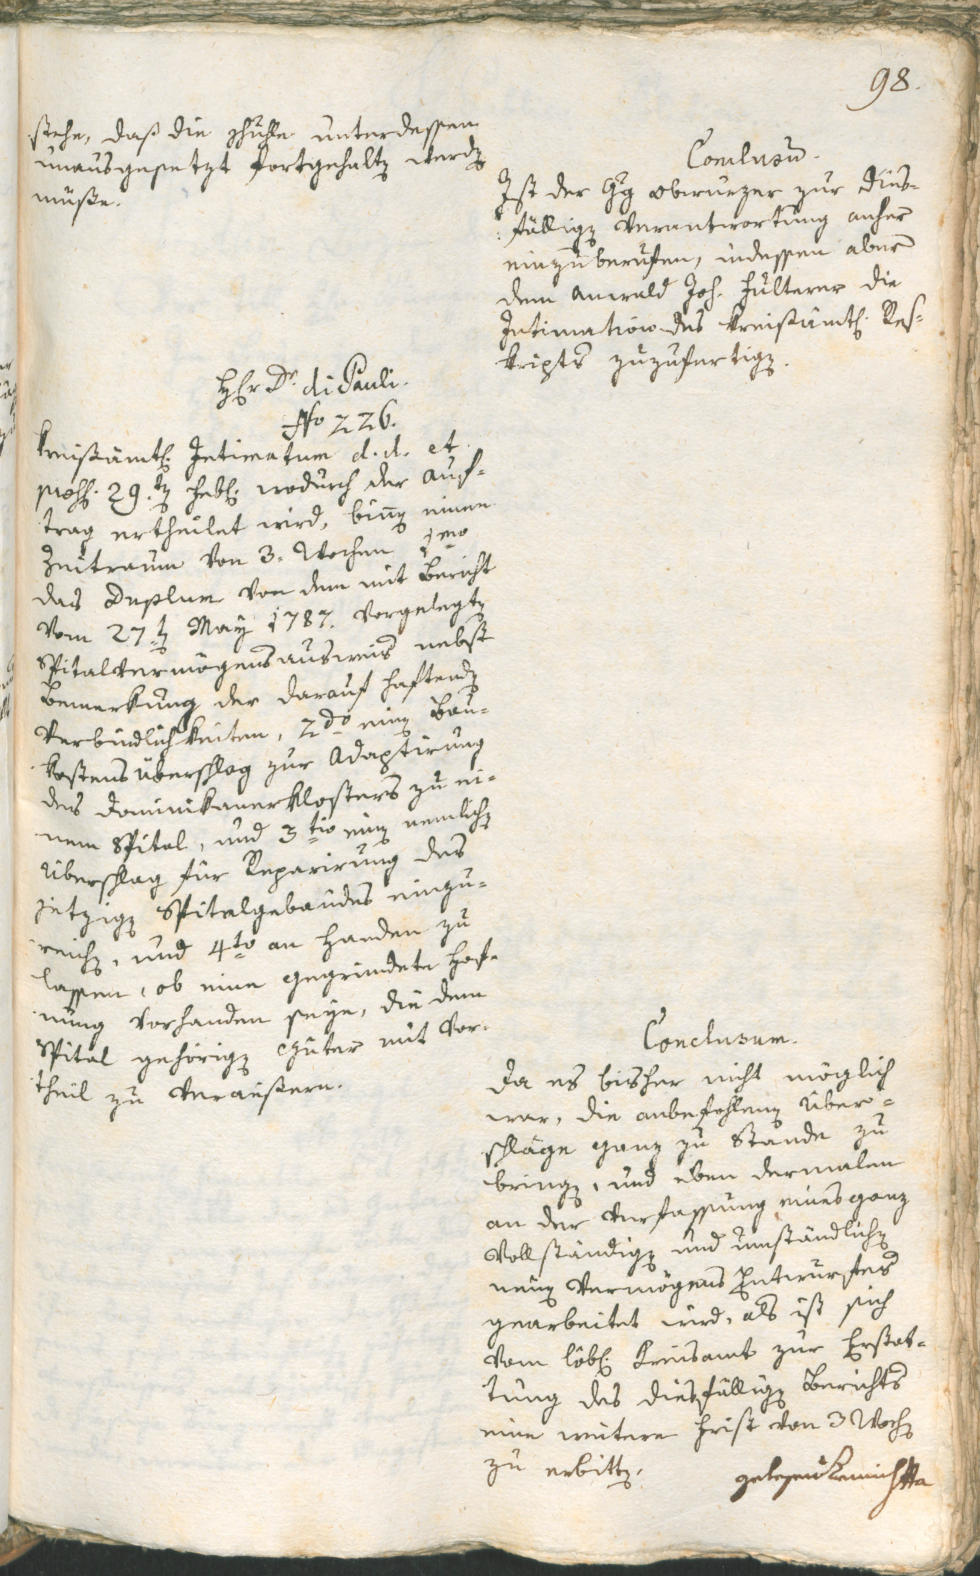 98.
stehe, daß die Schulle unterdessen
unausgesetzt fortgehalt werd
müße.
Conclusū.
Ist der Hg Obrunzer zur dies-
fällig Verantwortung anher
einzuberufen, indessen aber
dem Anwald Joh. Hülterer die
Intimation des Kreißämtl. Res-
kripts zuzufertig.
H Er Dr. di Pauli.
No 226.
Kreißämtl. Intimatum d. d. et
29. Feb. wodurch der Auf-
trag ertheilet wird, biñ einem
Zeitraum von 3. Wochen 1mo
das Duplum von dem mit Bericht
vom 27t May 1787. vorgelegt
Spitalvermögensausweis nebst
Bemerkung der darauf haftend
Verbindlichkeiten, 2do ein Bau-
kostensüberschlag zur Adaptirung
des Dominikanerklosters zu ei-
nem Spital, und 3tio ein nemlich
Überschlag für Reparirung des
jetzig Spitalgebäudes einzu-
reich, und 4to an Handen zu
lassen, ob eine gegründete Hof-
nung vorhanden seye, die dem
Spital gehörig Güter mit Vor-
theil zu veräußern.
Conclusum.
Da es bisher nicht möglich
war, die anbefohlen Über-
schläge ganz zu Stande zu
bring, und eben dermalen
an der Verfassung eines ganz
vollständig und umständlich
neuen Vermögens Entwurfes
gearbeitet wird, als ist sich
vom löbl. Kreisamt zur Erstat-
tung des diesfällig Berichts
eine weitere Frist von 3 Woch
zu erbitt.
gelesen